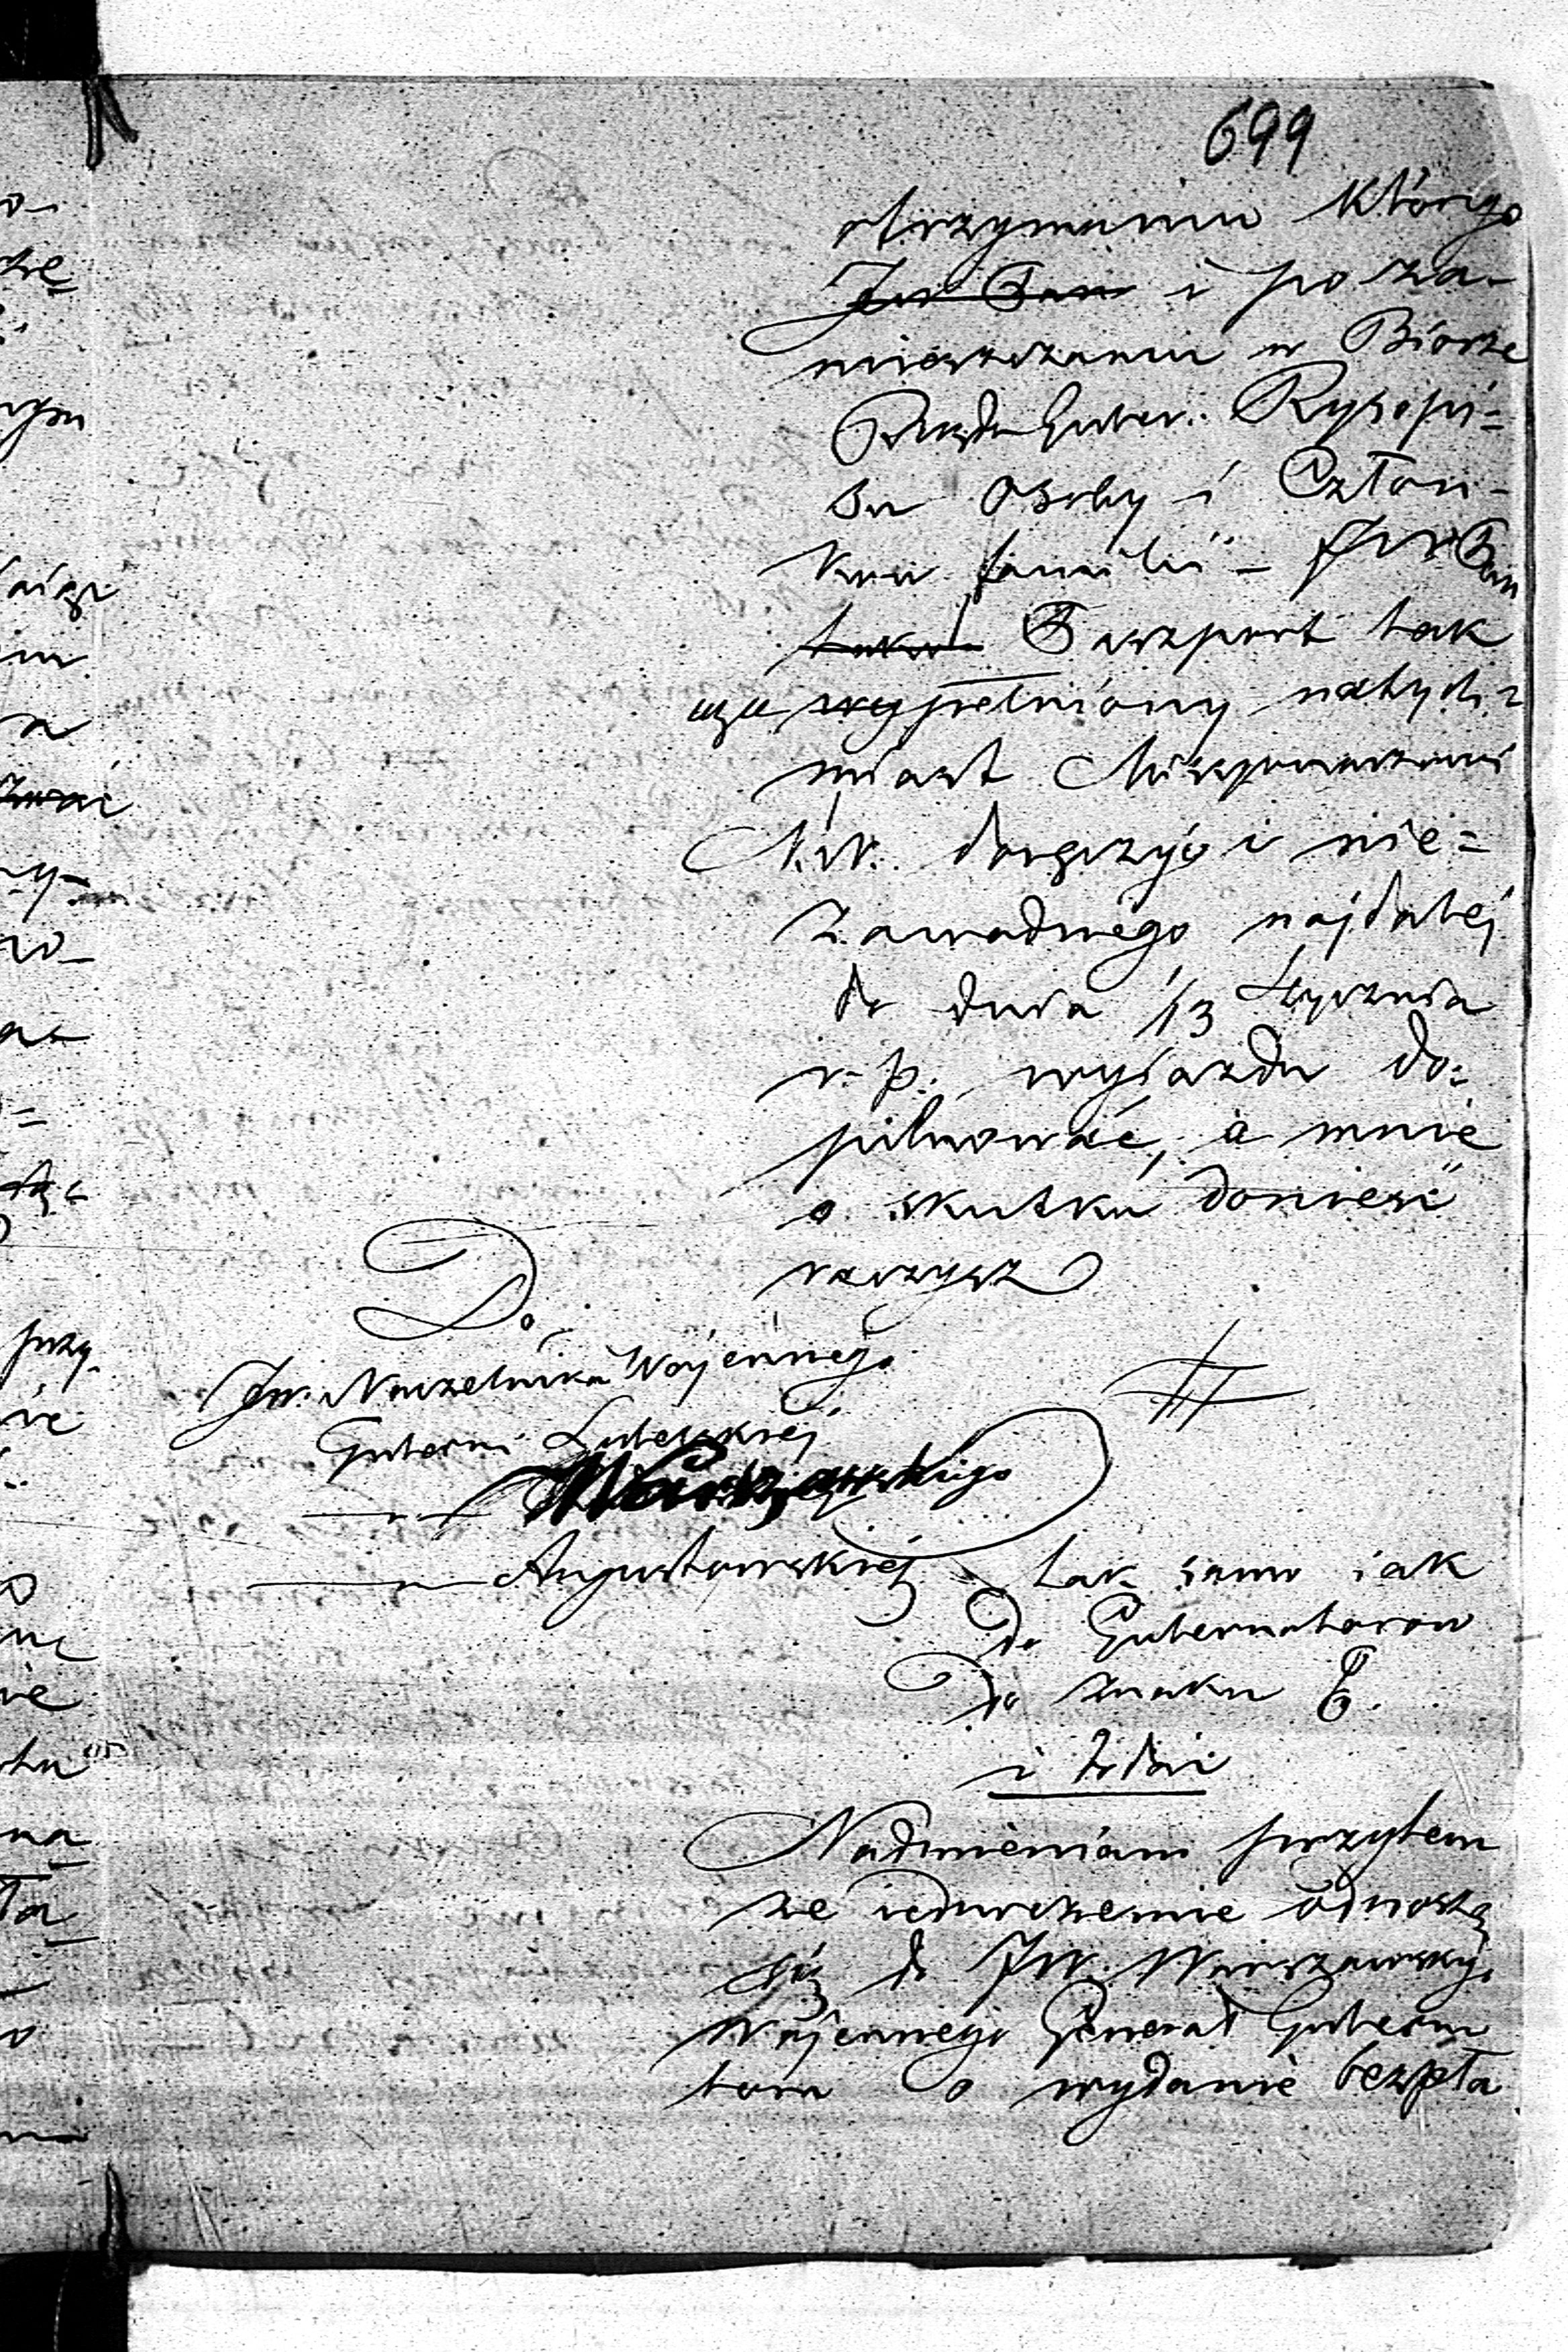 699
otrzymaniu którego
JW Pan i po za-
mieszczeniu w Biorze
Rządu Guber: Rysopi-
su osoby i Człon-
ków familii - JW Pan
Paszport tak
uzupełniony natych-
miast
NN. doręczyć i nie-
zawodnego najdalej
do dnia 1/13 Stycznia
r. p. wyjazdu do-
pilnować, a mnie
o skutku donieść
raczysz
Do
JW. Naczelnika Wojennego
Guberni Lubelskiej
Warszawskiego
Augustowskiej
tak samo jak
do Gubernatorów
do znaku
i dodać
Nadmieniam przytem
że jednocześnie odnoszę
się do JW. Warszawskgo
Wojennego Generał Guberna
tora o wydanie bezpła